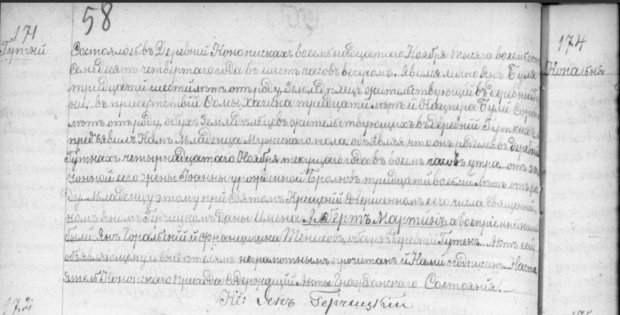 58
171
Гуткi
Состоялось въ Деревнѣ Конопискахъ восемьнадцатаго Ноября тысяча восемьсотъ
семьдесять четвертаго года въ шесть часовъ вечеромъ. Явился лично Янъ Буля
тридцати шести лѣтъ отъ роду, Земледѣлецъ жительствующiй въ деревни
въ присутствiи тридцати лѣтъ и Каспра Були сорока
лѣтъ отъ роду, обухъ Земледѣльцевъ жительствующихъ въ деревнѣ Гуткахъ и
предъявилъ Намъ Младенца Мужескаго пола, объявляя что онъ родился въ деревни
Гуткахъ четырнадцатаго Ноября текущаго года въ восемь часовъ утра, отъ за-
конной его жены Іоанны урожденной тридцати восемь лѣтъ отъ ро-
ду. Младенцу этому при Святомъ Крещенiи совершенномъ его числа Священни-
комъ Яномъ Даны Имена Мартинъ, а воспрiемниками
были Янъ и Францишка обае зъ деревни Гутекъ. Актъ сей
объявляющему и свидѣтелямъ неграмотнымъ прочитанъ и Нами подписанъ. Насто-
ятель Конопискаго прихода содержащiй Акты Гражданскаго Состоянiя.
Кс: Янъ
172
174